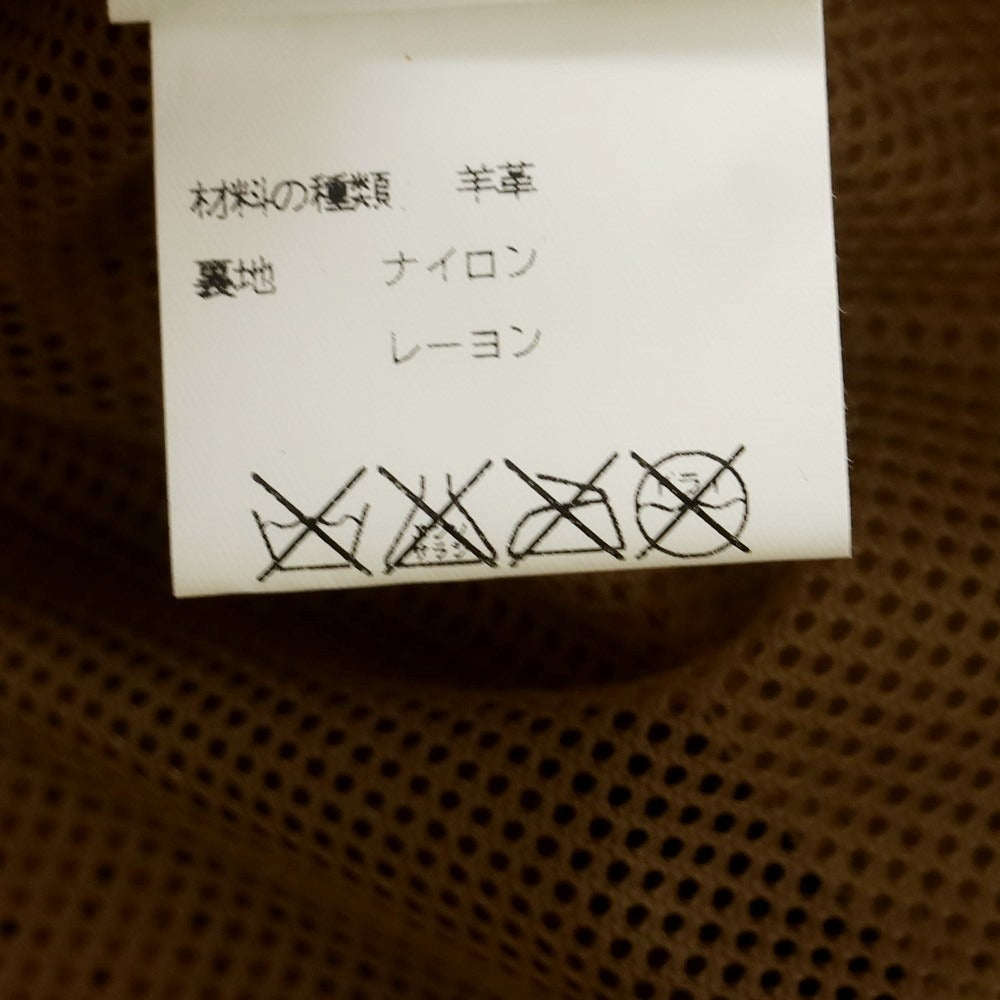 材料の種類 羊革
裏地 ナイロン
レーヨン
エンソ サラシ ドライ